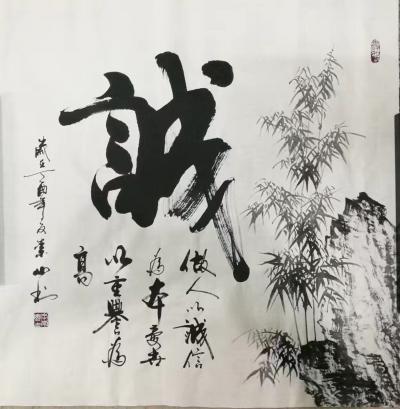 誠
做人以誠信
為本處世
以譽為
高
丁酉年